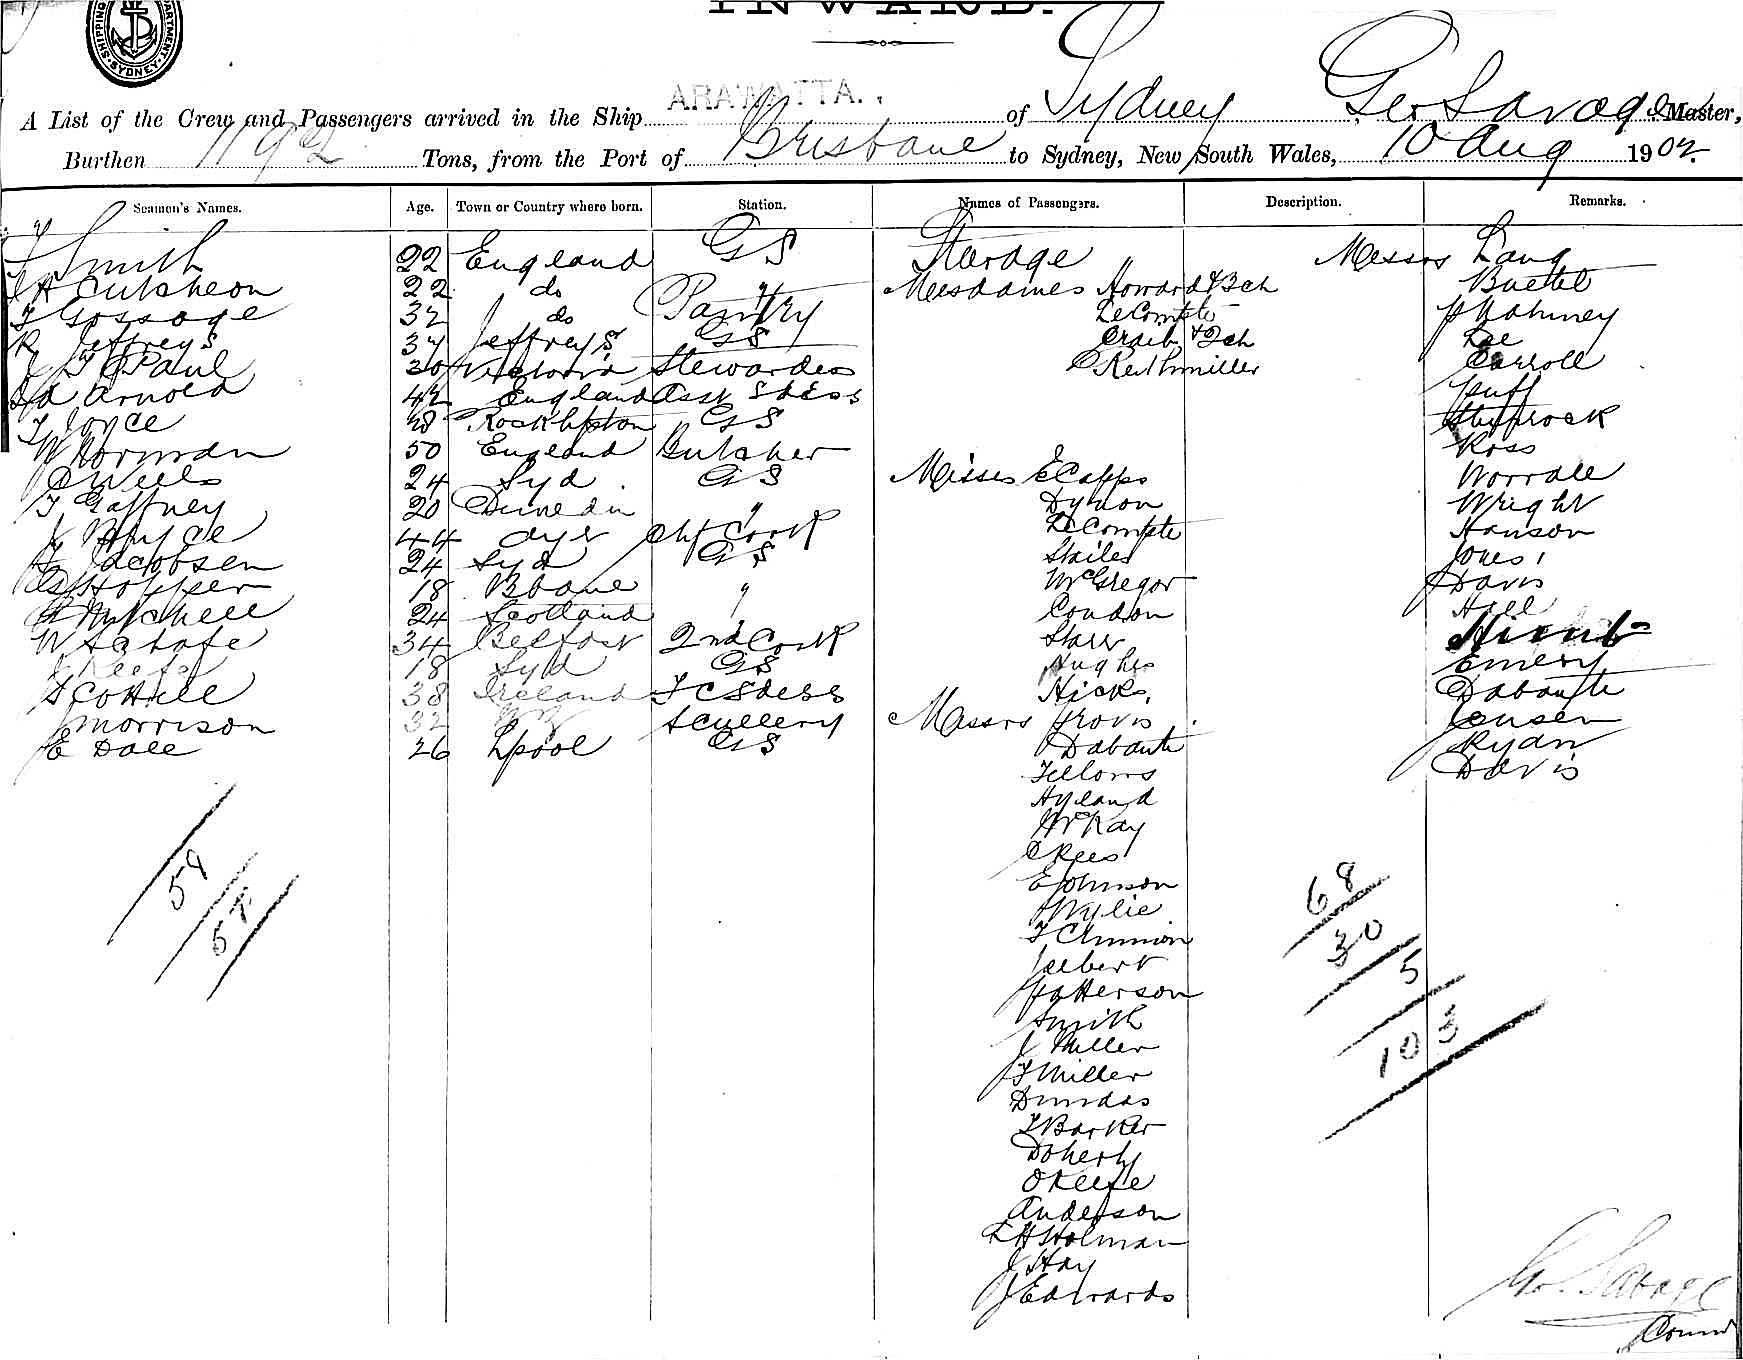 INWARD.
SHIPPING DEPARTMENT. SYDNEY.
A List of the Crew and Passengers arrived in the Ship ARAWATTA. of Sydney Geo Savage Master,
Burthen 1192 Tons, from the Port of Brisbane to Sydney, New South Wales, 10 Aug 1902.
Seamen's Names. Age. Town or Country where born. Station. Names of Passengers. Description. Remarks.
F Smith 22 England GS Steerage Messrs Lang
Cutcheon 22 do " Mesdames Howard & 3 ch Buettel
T Gossage 32 do Pantry LeCompte Mahoney
R Jeffreys 37 Jeffreys GS Craib & 2 ch Lee
Paul 30 Victoria Stewardess Reithmiller Carroll
Arnold 42 England Asst Stdess Puff
T Joyce 28 Rockhpton GS Shyprock
W Norman 50 England Butcher Ross
C Wells 24 Syd GS Misses E Capps Worrall
T Gaffney 20 Dunedin " Dynon Wright
J Bryce 44 Ayr Chf Cook LeCompte Hanson
Jacobsen 24 Syd GS Stailes Jones
G Hopper 18 Bbane " McGregor Davis
Mitchell 24 Scotland " Condon Hill
W Schafe 34 Belfast 2nd Cook Starr
J Keefe 18 Syd GS Hughes Emery
S Cottrell 38 Ireland F C Sdess Hicks Dabante
J Morrison 32 NZ Scullery Messrs Grovis Jensen
E Dale 26 Lpool GS Dabante Ryan
Fellows Davis
Hyland
McKay
C Rees
E Johnson
Wylie
T Cummion
Jalbert
Patterson
Smith
J Miller
T Miller
Dundas
T Barker
Doherty
O Keefe
Anderson
L H Holman
J Hay
J Edwards
58
58
68
30
5
103
Geo. Savage
Comm